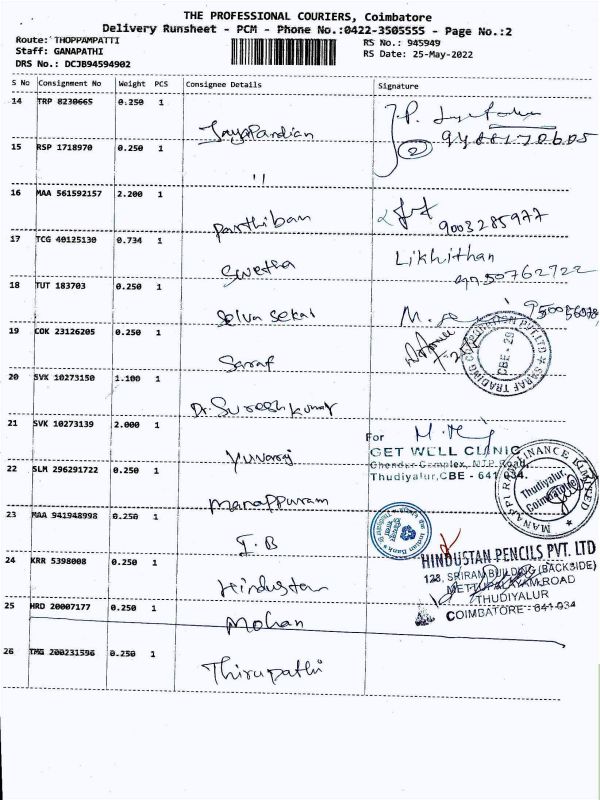 THE PROFESSIONAL COURIERS, Coimbatore
Delivery Runsheet - PCM - Phone No.:0422-3505555 - Page No.:2
Route: THOPPAMPATTI
RS No.: 945949
Staff: GANAPATHI
RS Date: 25-May-2022
DRS No.: DCJB94594902
S No Consignment No Weight PCS Consignee Details Signature
14 TRP 8230665 0.250 1 Jayapandian
9488170605
15 RSP 1718970 0.250 1 "
2
16 MAA 561592157 2.200 1 Parthiban 9003285977
17 TCG 40125130 0.734 1 Swetha Likhithan
18 TUT 183703 0.250 1 Selva Sekar
19 COK 23126205 0.250 1 Saraf
SARAF TRADING CORPORATION PVT LTD
CBE - 29
20 SVK 10273150 1.100 1 Dr. Sureshkumar
21 SVK 10273139 2.000 1 Yuvaraj
For
GET WELL CLINIC
Chendur Complex, MTP Road,
Thudiyalur, CBE - 641 034.
22 SLM 296291722 0.250 1 Manappuram
Thudiyalur, Coimbatore
23 MAA 941948998 0.250 1 I.B
Indian Bank
24 KRR 5398008 0.250 1 Hindustan
HINDUSTAN PENCILS PVT. LTD
128, SRIRAM BUILDING (BACKSIDE)
METTUPALAYAM ROAD
THUDIYALUR
COIMBATORE - 641 034
25 HRD 20007177 0.250 1 Mohan
26 TMG 200231596 0.250 1 Thirupathi